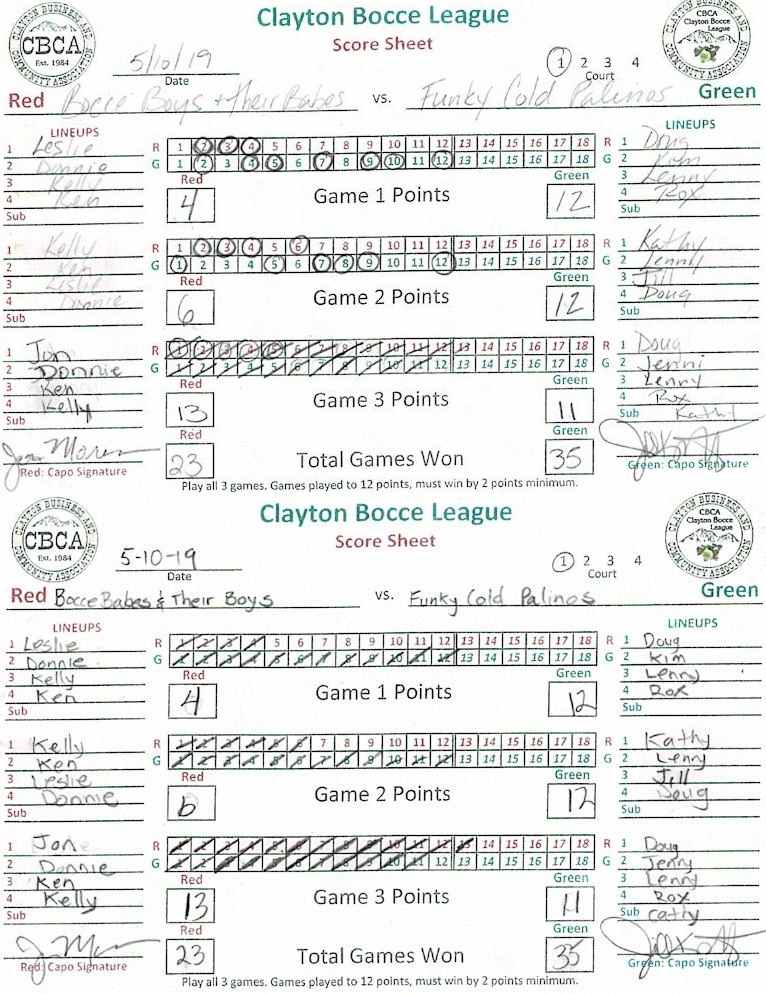 Clayton Bocce League
Score Sheet
CLAYTON BUSINESS AND COMMUNITY ASSOCIATION
CBCA
Est. 1984
CBCA
Clayton Bocce
League
5/10/19
Date
1 2 3 4
Court
Red Bocce Boys + their Babes vs. Funky Cold Palinos Green
LINEUPS
1 Leslie
2 Donnie
3 Kelly
4 Ken
Sub
R 1 2 3 4 5 6 7 8 9 10 11 12 13 14 15 16 17 18 R
G 1 2 3 4 5 6 7 8 9 10 11 12 13 14 15 16 17 18 G
Red Green
4 Game 1 Points 12
LINEUPS
1 Doug
2 Kim
3 Lenny
4 Rox
Sub
1 Kelly
2 Ken
3 Leslie
4 Donnie
Sub
R 1 2 3 4 5 6 7 8 9 10 11 12 13 14 15 16 17 18 R
G 1 2 3 4 5 6 7 8 9 10 11 12 13 14 15 16 17 18 G
Red Green
6 Game 2 Points 12
1 Kathy
2 Lenny
3 Jill
4 Doug
Sub
1 Jon
2 Donnie
3 Ken
4 Kelly
Sub
R 1 2 3 4 5 6 7 8 9 10 11 12 13 14 15 16 17 18 R
G 1 2 3 4 5 6 7 8 9 10 11 12 13 14 15 16 17 18 G
Red Green
13 Game 3 Points 11
1 Doug
2 Jenni
3 Lenny
4 Rox
Sub Kathy
Red Green
23 Total Games Won 35
Red: Capo Signature
Green: Capo Signature
Play all 3 games. Games played to 12 points, must win by 2 points minimum.
Clayton Bocce League
Score Sheet
CLAYTON BUSINESS AND COMMUNITY ASSOCIATION
CBCA
Est. 1984
CBCA
Clayton Bocce
League
5-10-19
Date
1 2 3 4
Court
Red Bocce Babes & Their Boys vs. Funky Cold Palinos Green
LINEUPS
1 Leslie
2 Donnie
3 Kelly
4 Ken
Sub
R 1 2 3 4 5 6 7 8 9 10 11 12 13 14 15 16 17 18 R
G 1 2 3 4 5 6 7 8 9 10 11 12 13 14 15 16 17 18 G
Red Green
4 Game 1 Points 12
LINEUPS
1 Doug
2 Kim
3 Lenny
4 Rox
Sub
1 Kelly
2 Ken
3 Leslie
4 Donnie
Sub
R 1 2 3 4 5 6 7 8 9 10 11 12 13 14 15 16 17 18 R
G 1 2 3 4 5 6 7 8 9 10 11 12 13 14 15 16 17 18 G
Red Green
6 Game 2 Points 12
1 Kathy
2 Lenny
3 Jill
4 Doug
Sub
1 Jon
2 Donnie
3 Ken
4 Kelly
Sub
R 1 2 3 4 5 6 7 8 9 10 11 12 13 14 15 16 17 18 R
G 1 2 3 4 5 6 7 8 9 10 11 12 13 14 15 16 17 18 G
Red Green
13 Game 3 Points 11
1 Doug
2 Jenny
3 Lenny
4 Rox
Sub Cathy
Red Green
23 Total Games Won 35
Red: Capo Signature
Green: Capo Signature
Play all 3 games. Games played to 12 points, must win by 2 points minimum.